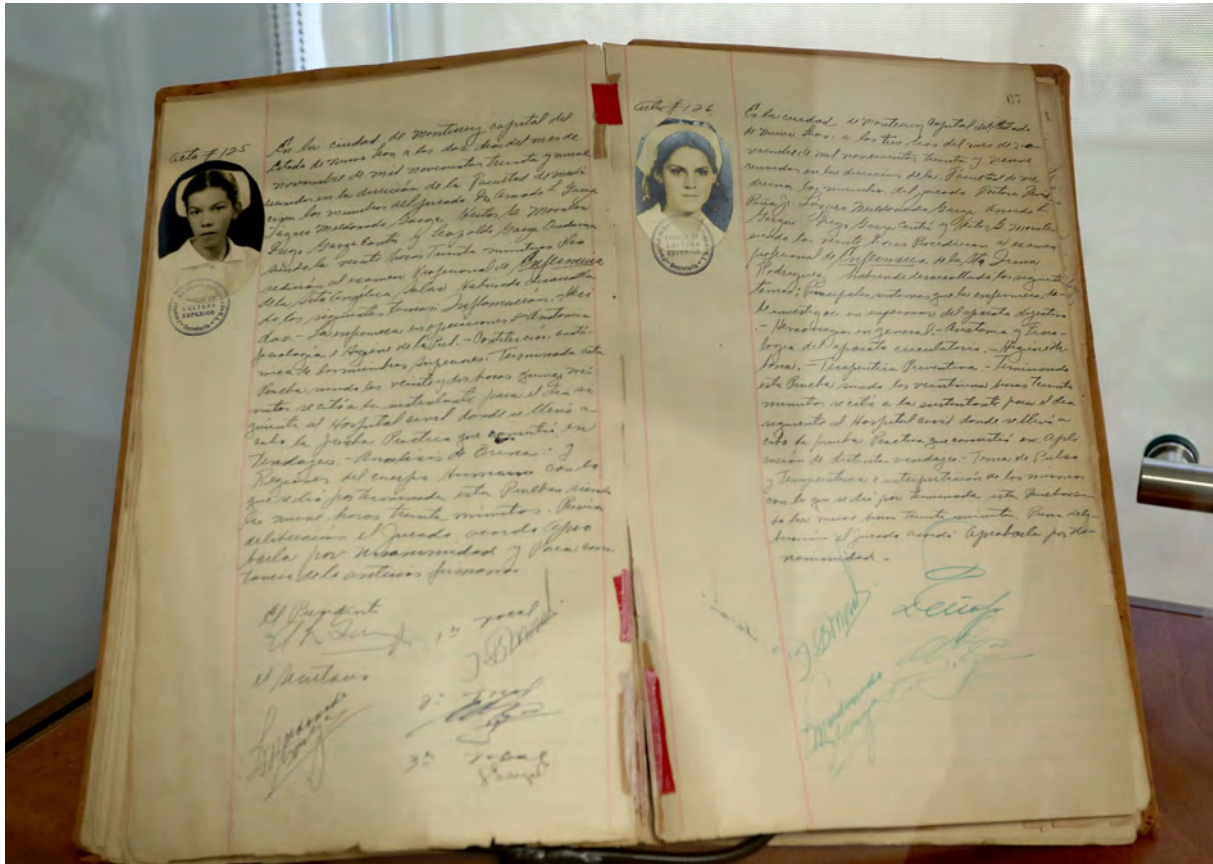 Acta # 125
En la ciudad de Monterrey capital del
Estado de Nuevo León a los dos días del mes de
noviembre de mil novecientos treinta y nueve
reunidos en la dirección de la Facultad de medi
cina los miembros del jurado Dr. Amado L. Garza
Lázaro Maldonado Garza, Héctor G. Morales
Diego Garza Cantú y Leopoldo Garza Ondarza
siendo las veinte horas treinta minutos Pro
cedieron al examen Profesional de Enfermera
de la Srta Angélica Salas Habiendo desarrolla
do los siguientes temas: Inflamación.-
La enfermera en operaciones.- Anatomía
fisiología e Higiene de la Piel.- Constitución anató
mica de los miembros superiores. Terminada esta
Prueba siendo las veintydos horas quince mi
nutos se citó a la sustentante para el día si
guiente al Hospital civil donde se llevó a
cabo la prueba Practica que consistió en
Vendajes.- Analisis de Orina.- y
Regiones del cuerpo Humano con lo
que se dió por terminada esta Prueba siendo
las nueve horas treinta minutos. Previa
deliberación el Jurado acordó Apro
barla por Unanimidad y Para cons
tancia de lo anterior firmamos.
El Presidente
1er vocal
el secretario
2o vocal
3er vocal
CULTURA
SUPERIOR
67
Acta # 126
En la ciudad de Monterrey Capital del Estado
de Nuevo León a los tres días del mes de no
viembre de mil novecientos treinta y nueve
reunidos en la dirección de la Facultad de me
dicina los miembros del jurado
Peña Jr. Lázaro Maldonado Garza Amado L.
Garza Diego Garza Cantú y Héctor G. Morales
siendo las veinte horas Procedieron al examen
profesional de Enfermera de la Srta Irma
Rodríguez, Habiendo desarrollado los siguientes
temas: Principales sintomas que la enfermera de
be investigar en enfermos del aparato digestivo
.- Hemorragias en general.- Anatomía y Fisio
logia del aparato circulatorio.- Higiene
.- Terapéutica Preventiva.- Terminando
esta Prueba siendo las veintiuna horas treinta
minutos se citó a la sustentante para el día
siguiente al Hospital civil donde se llevó a
cabo la prueba Practica que consistió en: Apli
cación de distintos vendajes.- Toma de Pulso
y Temperatura e interpretación de los mismos
con lo que se dió por terminada esta Prueba sien
do las nueve horas treinta minutos. Previa deli
beración el Jurado acordó Aprobarla por Una
nimidad.-
CULTURA
SUPERIOR
Maldonado
Garza